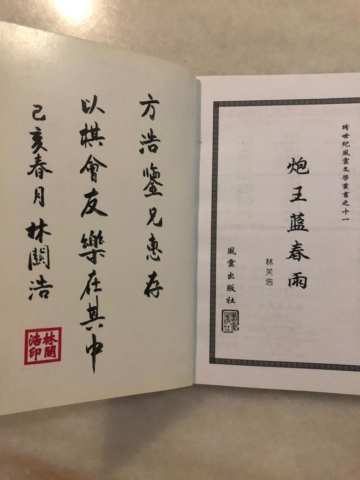 方浩鑒兄惠存
以棋會友樂在其中
己亥春月林關浩
林關
浩印
跨世纪風雲文學叢書之十一
炮王蓝春雨
林关浩
風雲出版社